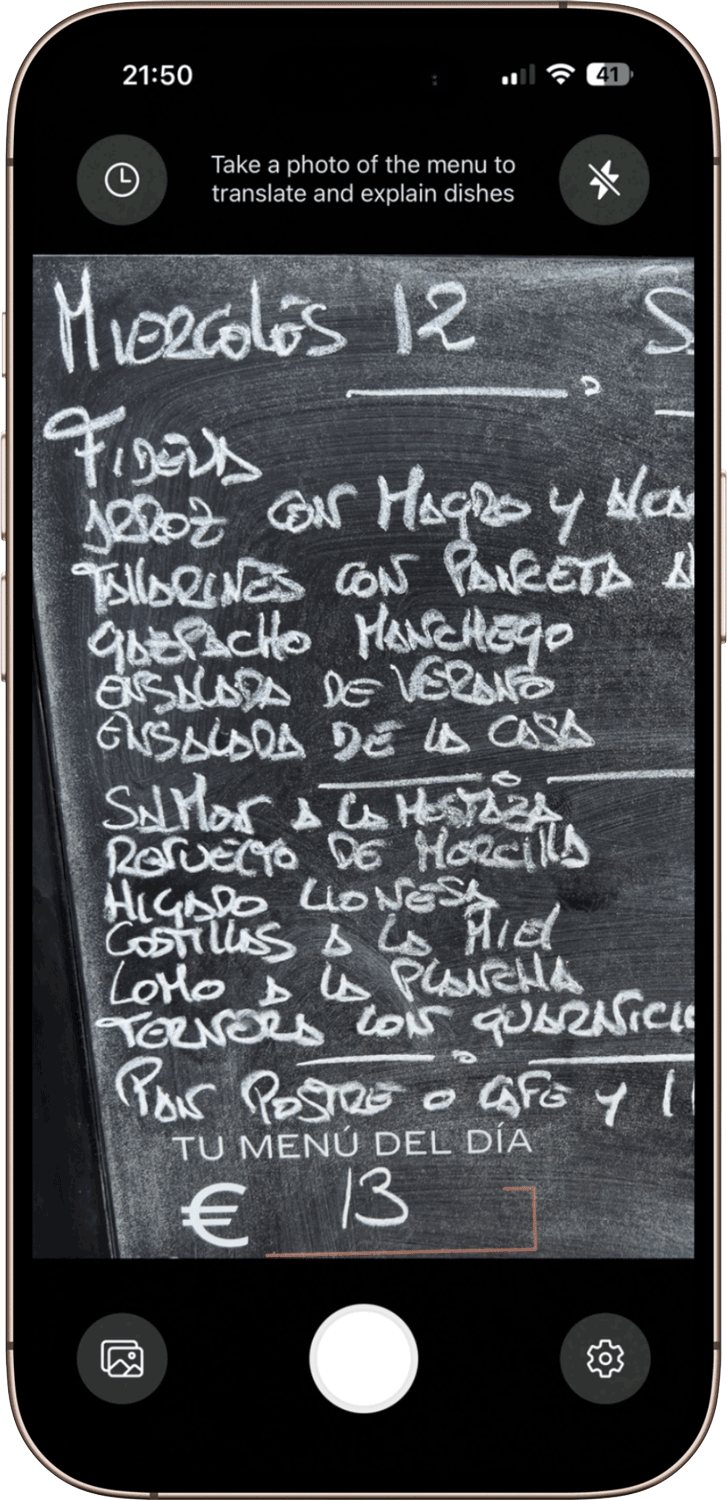 21:50
41
Take a photo of the menu to
translate and explain dishes
MIERCOLES 12
FIDEUA
ARROZ CON MAGRO Y
TALLARINES CON PANCETA
GAZPACHO MANCHEGO
ENSALADA DE VERANO
ENSALADA DE LA CASA
SALMON A LA MOSTAZA
REVUELTO DE MORCILLA
HIGADO LIONESA
COSTILLAS A LA MIEL
LOMO A LA PLANCHA
TERNERA CON
PAN POSTRE O CAFE Y
TU MENÚ DEL DÍA
€ 13